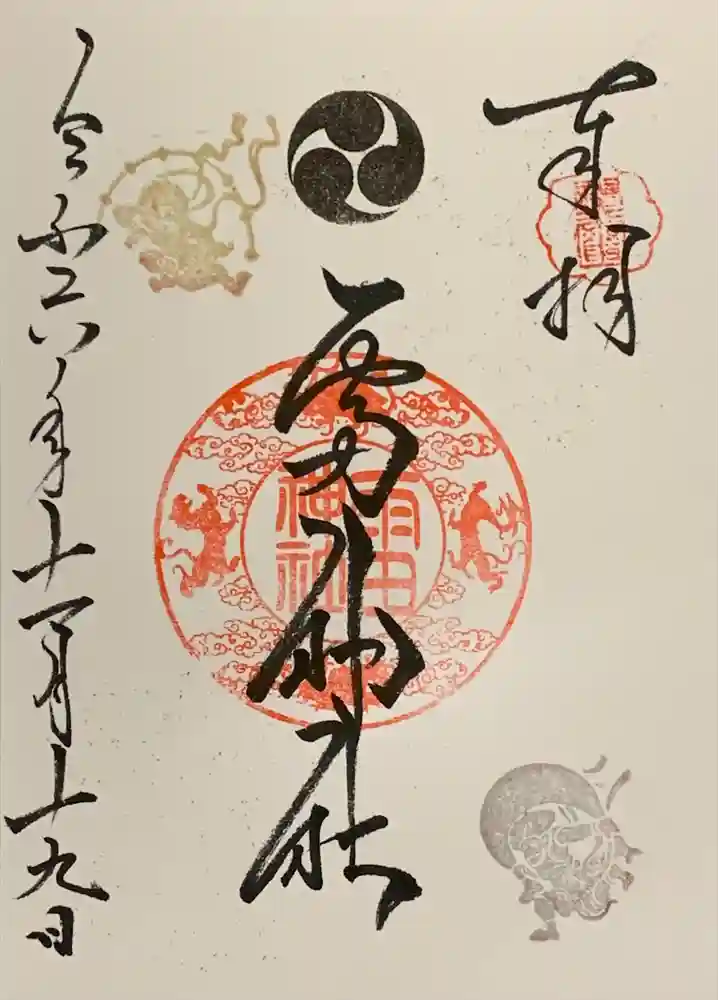 奉拝
雷神社
雷神社
令和六年十一月十九日